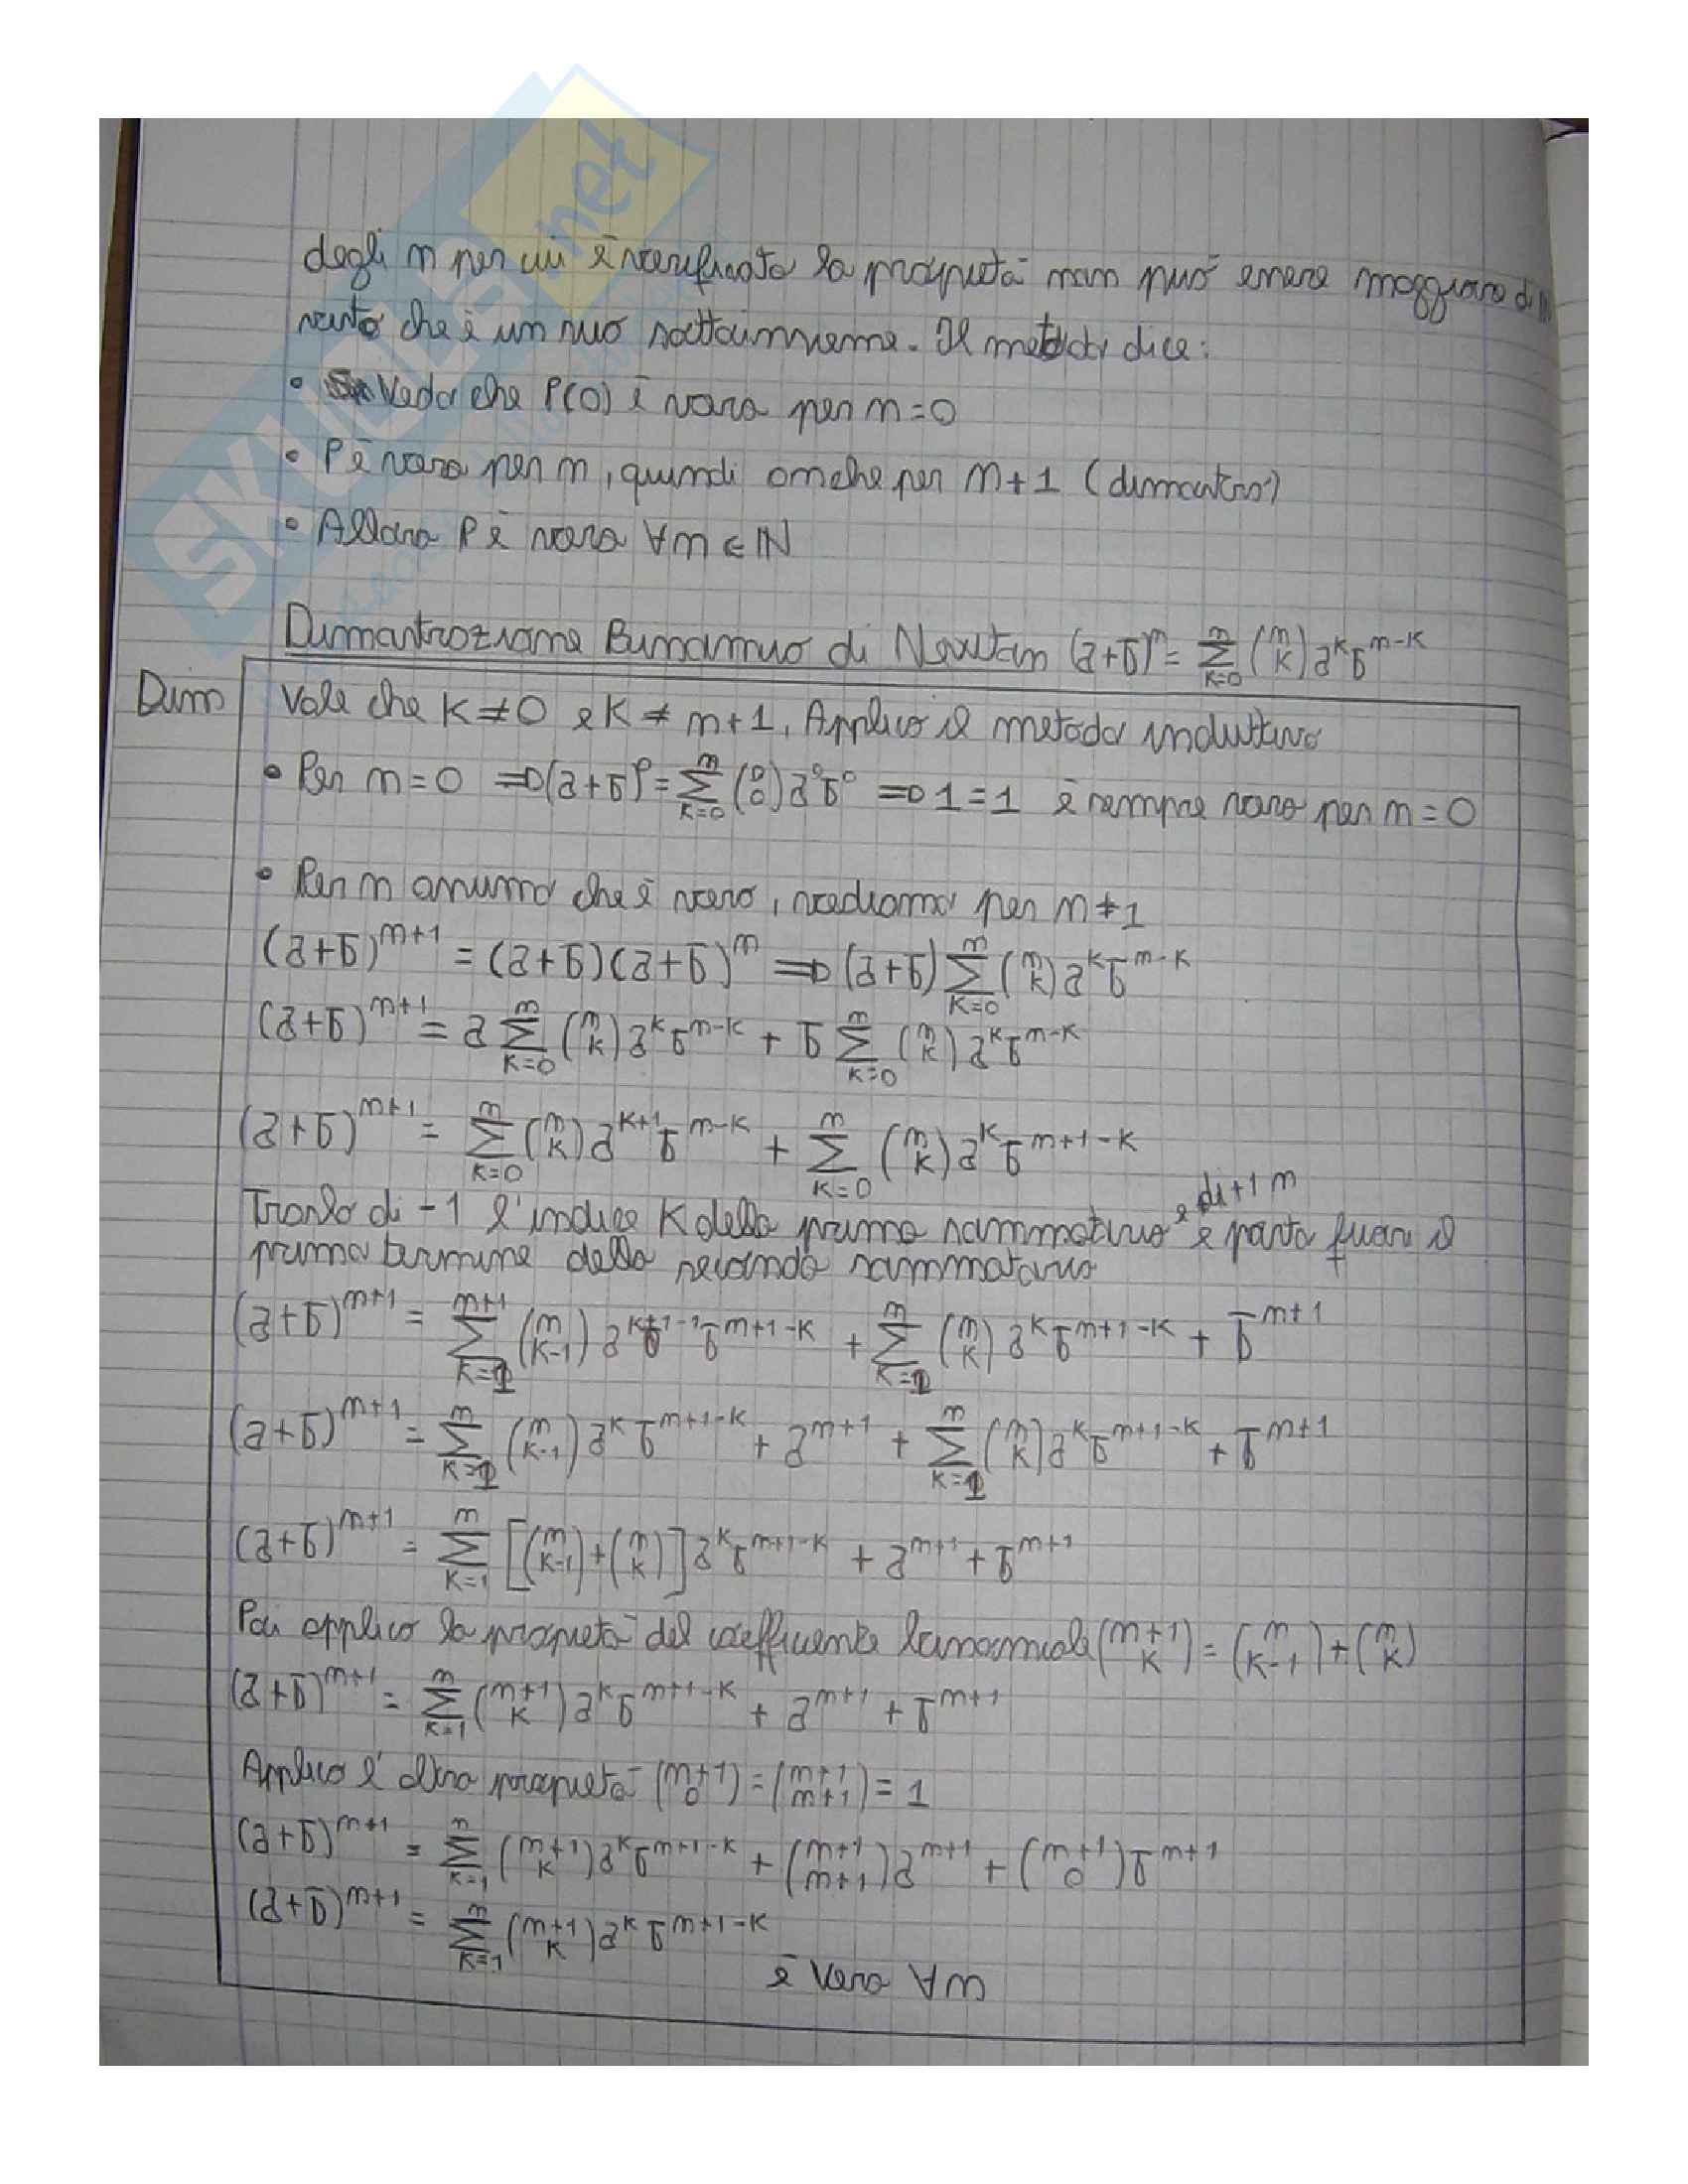 degli n per cui è verificata la proprietà non può essere maggiore di N
visto che è un suo sottoinsieme. Il metodo dice:
• Vedo che P(0) è vera per n=0
• P è vera per n, quindi anche per n+1 (dimostro)
• Allora P è vera ∀n∈ℕ
Dimostrazione Binomio di Newton (a+b)^n = Σ_{k=0}^{n} (n k) a^k b^{n-k}
Dim Vale che K≠0 e K≠n+1. Applico il metodo induttivo
• Per n=0 ⇒ (a+b)^0 = Σ_{k=0}^{n} (0 0) a^0 b^0 ⇒ 1=1 è sempre vero per n=0
• Per n assumo che è vero, vediamo per n+1
(a+b)^{n+1} = (a+b)(a+b)^n ⇒ (a+b) Σ_{k=0}^{n} (n k) a^k b^{n-k}
(a+b)^{n+1} = a Σ_{k=0}^{n} (n k) a^k b^{n-k} + b Σ_{k=0}^{n} (n k) a^k b^{n-k}
(a+b)^{n+1} = Σ_{k=0}^{n} (n k) a^{k+1} b^{n-k} + Σ_{k=0}^{n} (n k) a^k b^{n+1-k}
Traslo di -1 l'indice K della prima sommatoria e di +1 n e porto fuori il
primo termine della seconda sommatoria
(a+b)^{n+1} = Σ_{k=1}^{n+1} (n k-1) a^{k+1-1} b^{n+1-k} + Σ_{k=1}^{n} (n k) a^k b^{n+1-k} + b^{n+1}
(a+b)^{n+1} = Σ_{k=1}^{n} (n k-1) a^k b^{n+1-k} + a^{n+1} + Σ_{k=1}^{n} (n k) a^k b^{n+1-k} + b^{n+1}
(a+b)^{n+1} = Σ_{k=1}^{n} [(n k-1)+(n k)] a^k b^{n+1-k} + a^{n+1} + b^{n+1}
Poi applico la proprietà del coefficiente binomiale (n+1 k) = (n k-1) + (n k)
(a+b)^{n+1} = Σ_{k=1}^{n} (n+1 k) a^k b^{n+1-k} + a^{n+1} + b^{n+1}
Applico l'altra proprietà (n+1 0) = (n+1 n+1) = 1
(a+b)^{n+1} = Σ_{k=1}^{n} (n+1 k) a^k b^{n+1-k} + (n+1 n+1) a^{n+1} + (n+1 0) b^{n+1}
(a+b)^{n+1} = Σ_{k=1}^{n} (n+1 k) a^k b^{n+1-k}
è vera ∀n
SKUOLA.net